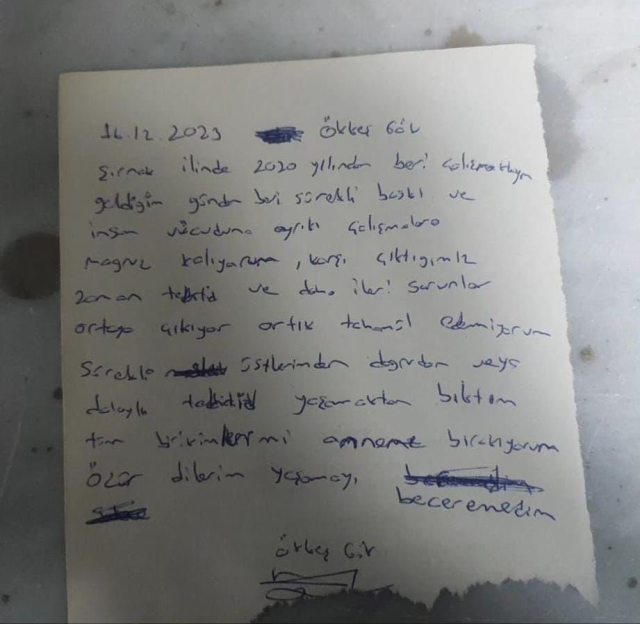 16.12.2023 Ökkeş Gök
Şırnak ilinde 2020 yılından beri çalışmaktayım
geldiğim günden beri sürekli baskı ve
insan vücuduna aykırı çalışmalara
magruz kalıyorum, karşı çıktığımız
zaman tehtid ve daha ileri sorunlar
ortaya çıkıyor artık tahamül edemiyorum
Sürekli üstlerimden doğrudan veya
dolaylı tehtid yaşamaktan bıktım
tüm birikimlerimi anneme bırakıyorum
Özür dilerim yaşamayı
beceremedim
Ökkeş